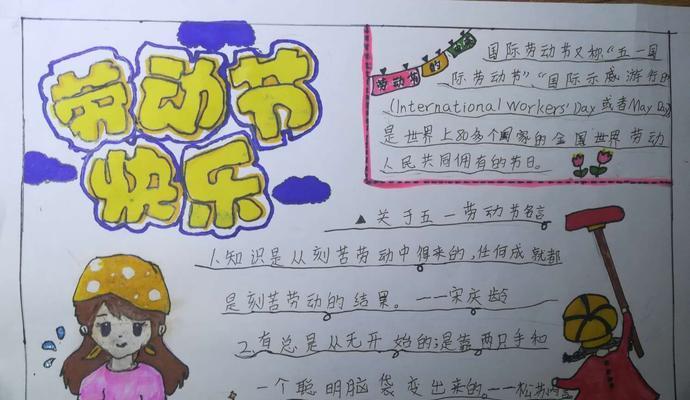 劳动节
快乐
劳动节的
国际劳动节又称“五一国
际劳动节”、“国际示威游行的
(International Workers' Day 或者May Day)
是世界上80多个国家的全国世界劳动
人民共同拥有的节日。
▲关于五一劳动节名言
1.知识是从刻苦劳动中得来的,任何成就都
是刻苦劳动的结果。——宋庆龄
2.有总是从无开始的;是靠两只手和
一个聪明脑袋变出来的。——松苏